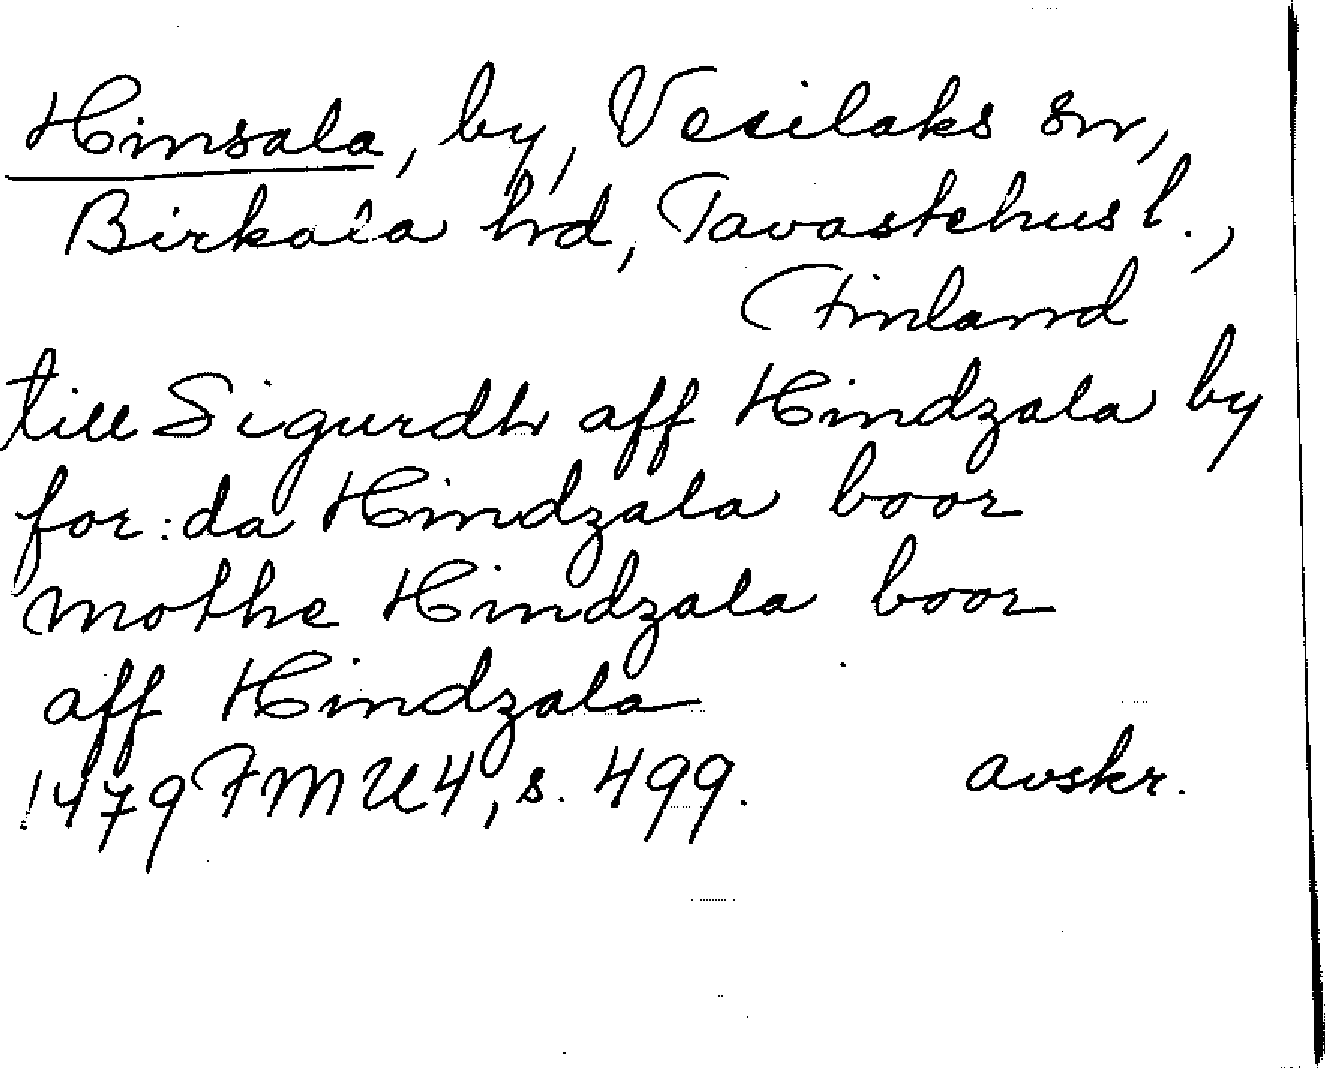 Hinsala, by, Vesilaks sn,
Birkala hrd, Tavastehus l.,
Finland
till Sigurdh aff Hindzala by
for:da Hindzala boor
mothe Hindzala boor
aff Hindzala
1479 FMU 4, s. 499. avskr.